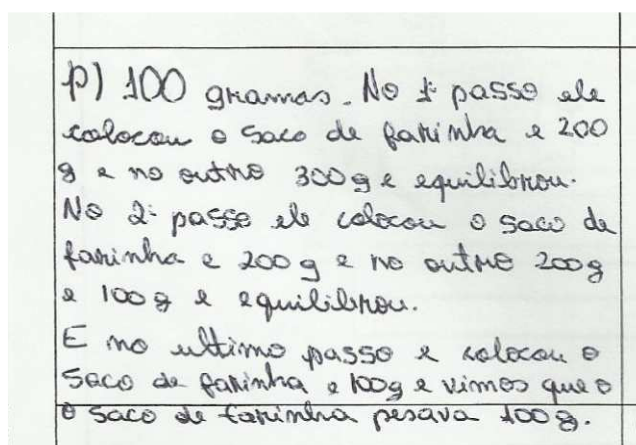 p) 100 gramas. No 1º passo ele
colocou o saco de farinha e 200
g e no outro 300g e equilibrou.
No 2º passo ele colocou o saco de
farinha e 200 g e no outro 200g
e 100g e equilibrou.
E no ultimo passo e colocou o
saco de farinha e 100g e vimos que o
o saco de farinha pesava 100g.